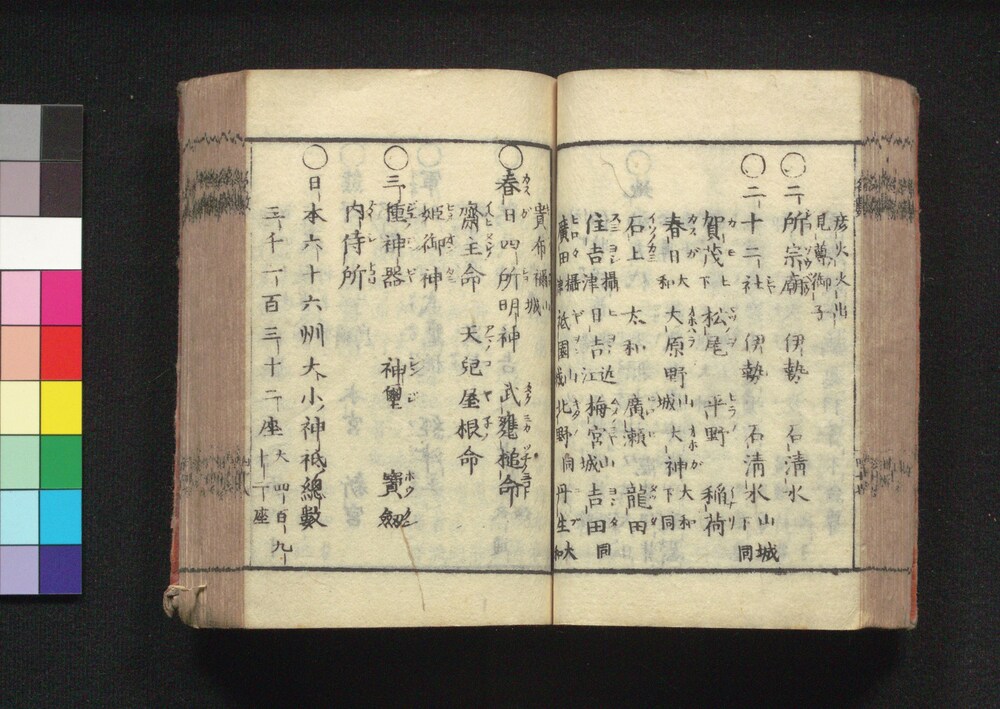 彦火火出
見尊御子
〇二所宗廟 伊勢 石清水
〇二十二社 伊勢 石清水山城
下同
賀茂下 松尾 平野 稲荷
春日大和 大原野山城 大神大和下同
石上 大和 廣瀬 龍田
住吉攝津 日吉近江 梅宮山城 吉田同
廣田攝津 祇園山城 北野同 丹生大和
貴布禰山城
〇春日四所明神 武甕槌命
齋主命 天兒屋根命
姫御神
〇三種神器 神璽 寶劔
内侍所
〇日本六十六州大小神祇總數
三千一百三十二座大四百九十二座